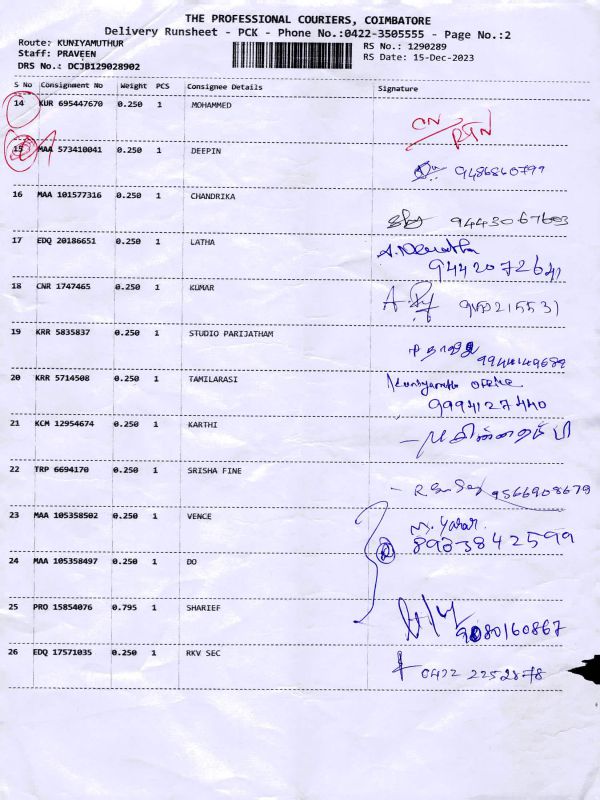 THE PROFESSIONAL COURIERS, COIMBATORE
Delivery Runsheet - PCK - Phone No.:0422-3505555 - Page No.:2
Route: KUNIYAMUTHUR
RS No.: 1290289
Staff: PRAVEEN
RS Date: 15-Dec-2023
DRS No.: DCJB129028902
S No Consignment No Weight PCS Consignee Details Signature
14 KUR 695447670 0.250 1 MOHAMMED
RTN
15 MAA 573410041 0.250 1 DEEPIN
9486860799
16 MAA 101577316 0.250 1 CHANDRIKA
17 EDQ 20186651 0.250 1 LATHA
9442072641
18 CNR 1747465 0.250 1 KUMAR
19 KRR 5835837 0.250 1 STUDIO PARIJATHAM
20 KRR 5714508 0.250 1 TAMILARASI
9994127440
21 KCM 12954674 0.250 1 KARTHI
22 TRP 6694170 0.250 1 SRISHA FINE
9566908679
23 MAA 105358502 0.250 1 VENCE
8903842599
24 MAA 105358497 0.250 1 DO
25 PRO 15854076 0.795 1 SHARIEF
9080160867
26 EDQ 17571035 0.250 1 RKV SEC
0422 2252878